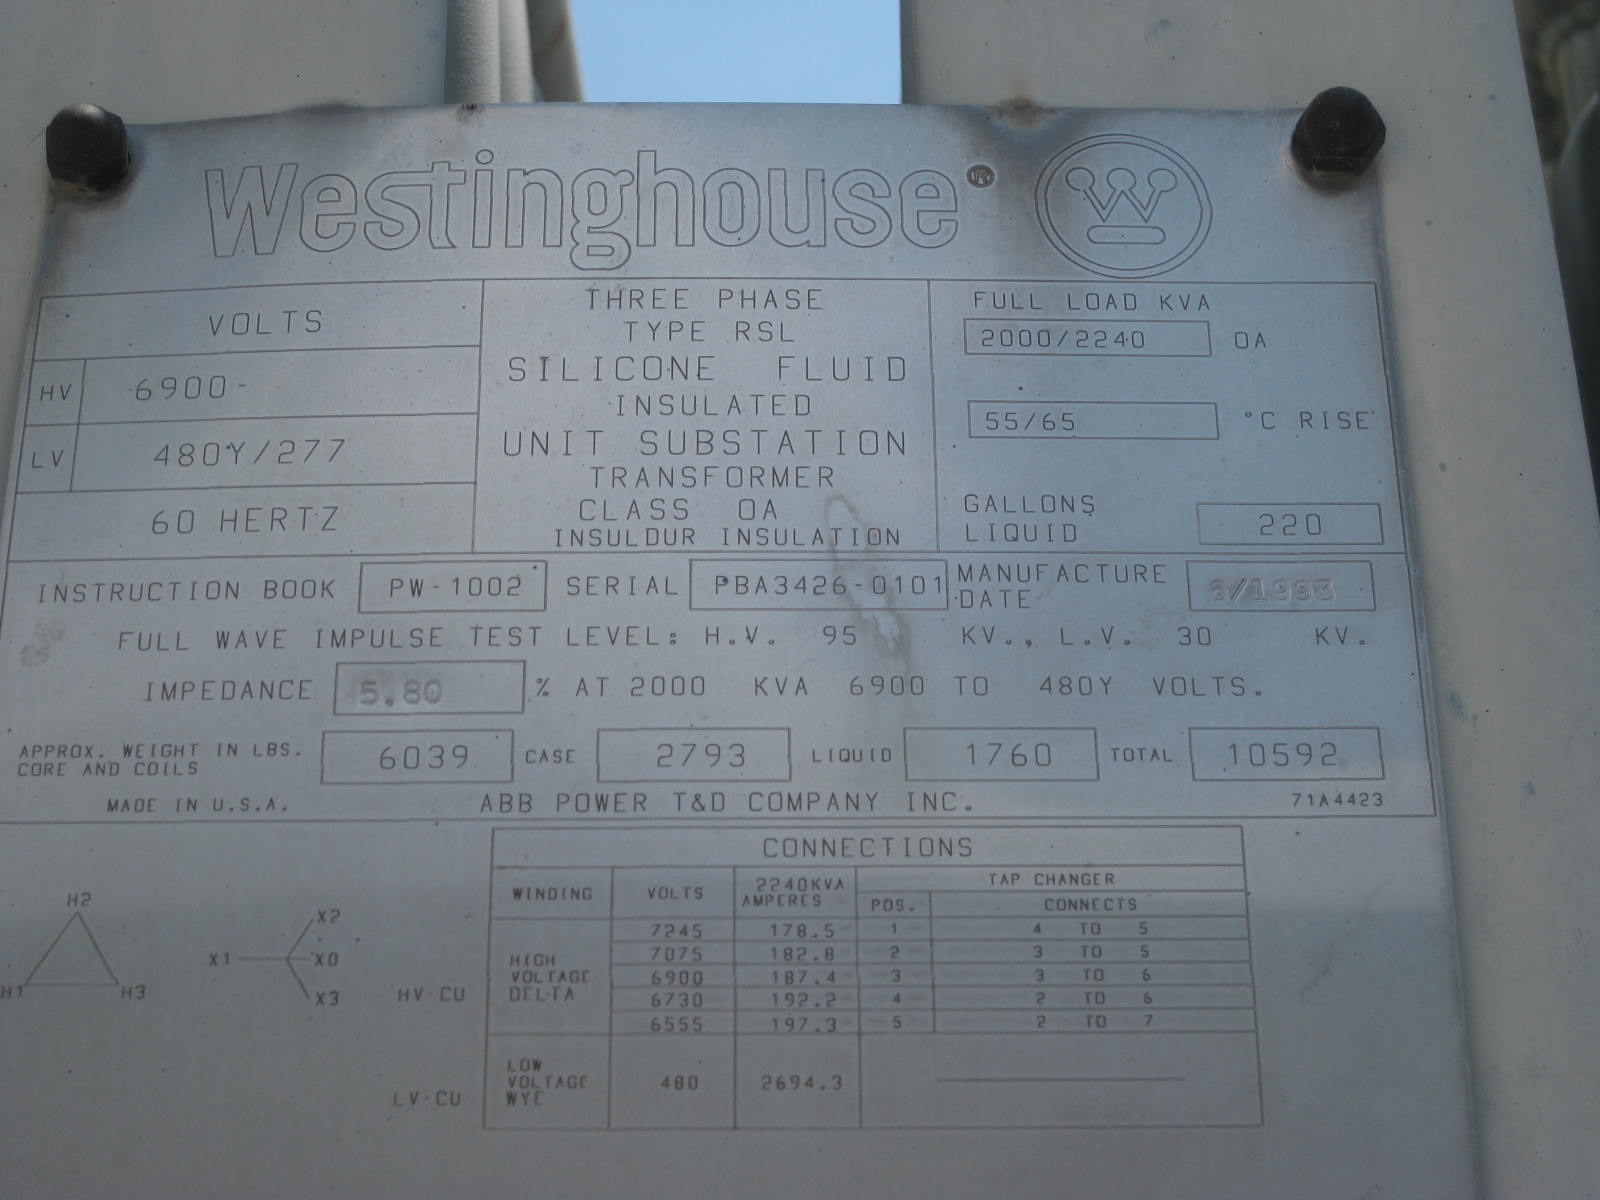 Westinghouse®
W
VOLTS
HV 6900-
LV 480Y/277
60 HERTZ
THREE PHASE
TYPE RSL
SILICONE FLUID
INSULATED
UNIT SUBSTATION
TRANSFORMER
CLASS OA
INSULDUR INSULATION
FULL LOAD KVA
2000/2240 OA
55/65 °C RISE
GALLONS
LIQUID 220
INSTRUCTION BOOK PW-1002 SERIAL PBA3426-0101 MANUFACTURE
DATE /1993
FULL WAVE IMPULSE TEST LEVEL: H.V. 95 KV., L.V. 30 KV.
IMPEDANCE 5.80 % AT 2000 KVA 6900 TO 480Y VOLTS.
APPROX. WEIGHT IN LBS.
CORE AND COILS 6039 CASE 2793 LIQUID 1760 TOTAL 10592
MADE IN U.S.A. ABB POWER T&D COMPANY INC. 71A4423
CONNECTIONS
WINDING VOLTS 2240KVA
AMPERES TAP CHANGER
POS. CONNECTS
HIGH
VOLTAGE
DELTA
7245 178.5 1 4 TO 5
7075 182.8 2 3 TO 5
6900 187.4 3 3 TO 6
6730 192.2 4 2 TO 6
6555 197.3 5 2 TO 7
LOW
VOLTAGE
WYE
480 2694.3
H2
H1 H3
X2
X1 X0
X3
HV-CU
LV-CU